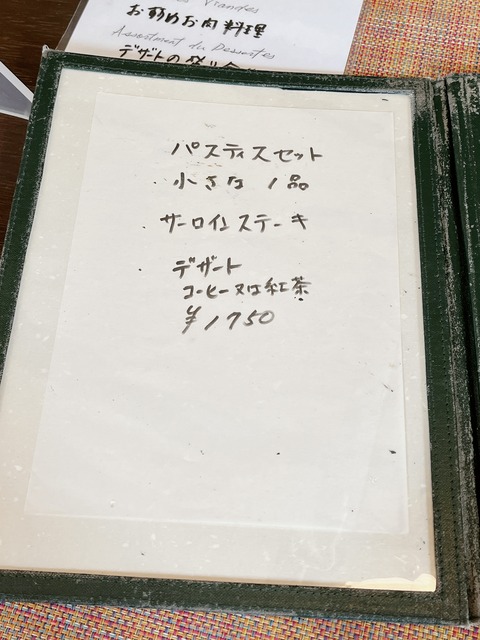 Viandes
お勧めお肉料理
Assortiment du Desserts
デザートの盛り合
パスティスセット
・小さな1品
・サーロインステーキ
・デザート
コーヒー又は紅茶
¥1750